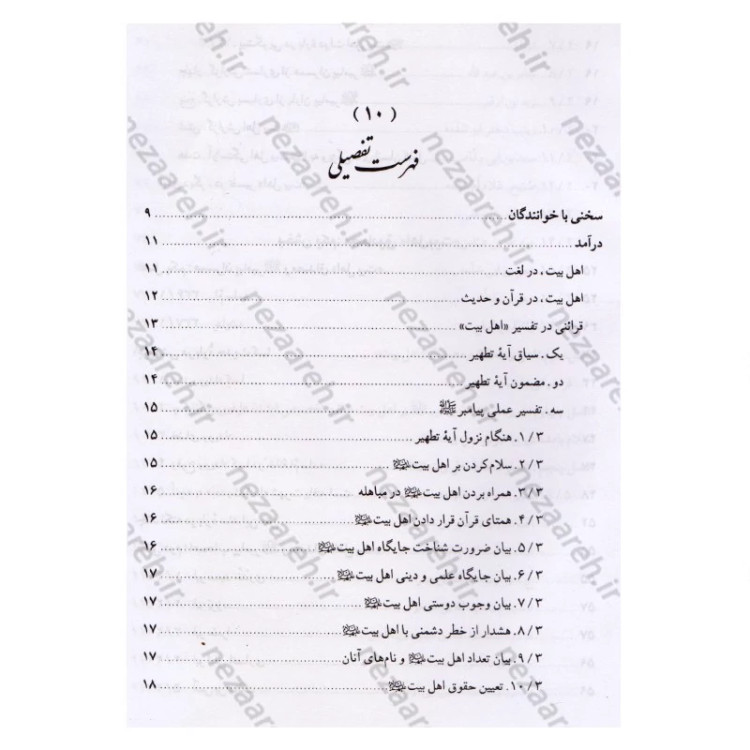 ( ۱۰ )
فهرست تفصیلی
سخنی با خوانندگان ... ۹
درآمد ... ۱۱
اهل بیت، در لغت ... ۱۱
اهل بیت، در قرآن و حدیث ... ۱۲
قرائنی در تفسیر «اهل بیت» ... ۱۳
یک. سیاق آیهٔ تطهیر ... ۱۴
دو. مضمون آیهٔ تطهیر ... ۱۴
سه. تفسیر عملی پیامبر ﷺ ... ۱۵
۳ / ۱. هنگام نزول آیهٔ تطهیر ... ۱۵
۳ / ۲. سلام‌کردن بر اهل بیت ... ۱۵
۳ / ۳. همراه بردن اهل بیت در مباهله ... ۱۶
۳ / ۴. همتای قرآن قرار دادن اهل بیت ... ۱۶
۳ / ۵. بیان ضرورت شناخت جایگاه اهل بیت ... ۱۶
۳ / ۶. بیان جایگاه علمی و دینی اهل بیت ... ۱۷
۳ / ۷. بیان وجوب دوستی اهل بیت ... ۱۷
۳ / ۸. هشدار از خطر دشمنی با اهل بیت ... ۱۷
۳ / ۹. بیان تعداد اهل بیت و نام‌های آنان ... ۱۷
۳ / ۱۰. تعیین حقوق اهل بیت ... ۱۸
nezaareh.ir